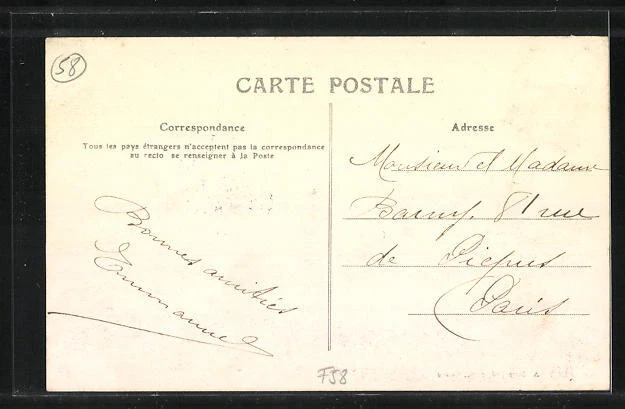 58
CARTE POSTALE
Correspondance
Tous les pays étrangers n'acceptent pas la correspondance
au recto se renseigner à la Poste
Bonnes amitiés
Emmanuel
Adresse
Monsieur et Madame
Barny, 81 rue
de Picpus
Paris
F58